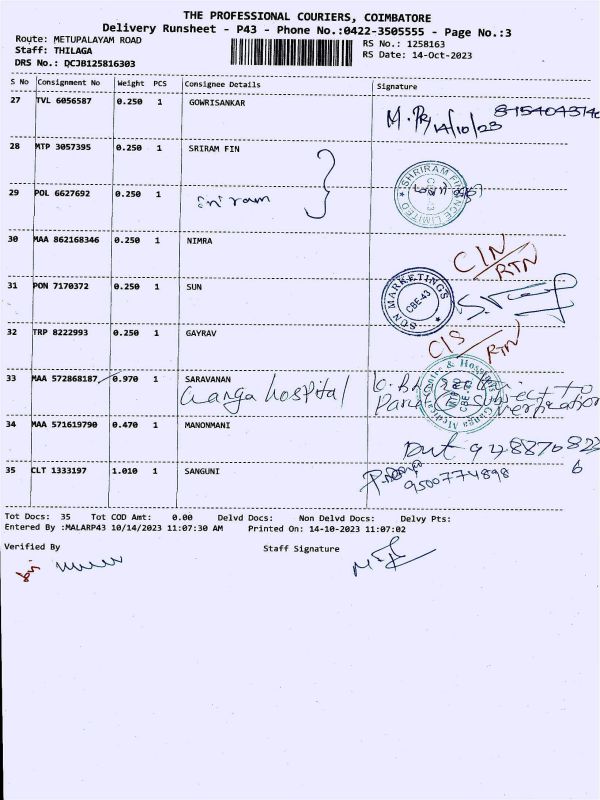 THE PROFESSIONAL COURIERS, COIMBATORE
Delivery Runsheet - P43 - Phone No.:0422-3505555 - Page No.:3
Route: METUPALAYAM ROAD RS No.: 1258163
Staff: THILAGA RS Date: 14-Oct-2023
DRS No.: DCJB125816303
S No Consignment No Weight PCS Consignee Details Signature
27 TVL 6056587 0.250 1 GOWRISANKAR
14/10/23
28 MTP 3057395 0.250 1 SRIRAM FIN
SHRIRAM FINANCE LIMITED
29 POL 6627692 0.250 1
sri ram
30 MAA 862168346 0.250 1 NIMRA
CIN/RTN
31 PON 7170372 0.250 1 SUN
SUN MARKETINGS
CBE-43
32 TRP 8222993 0.250 1 GAYRAV
CIS/RTN
33 MAA 572868187 0.970 1 SARAVANAN
Ganga hospital
Subject to
Verification
Ganga Medical Centre & Hospital
34 MAA 571619790 0.470 1 MANONMANI
35 CLT 1333197 1.010 1 SANGUNI
9500774898
Tot Docs: 35 Tot COD Amt: 0.00 Delvd Docs: Non Delvd Docs: Delvy Pts:
Entered By :MALARP43 10/14/2023 11:07:30 AM Printed On: 14-10-2023 11:07:02
Verified By Staff Signature